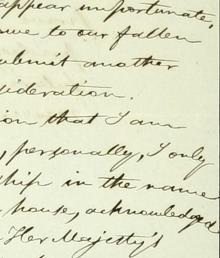 appear importunate,
owe to our fallen
submit another
sideration.
ion that I am
, personally, I only
ship in the name
house, acknowledged
Her Majesty's